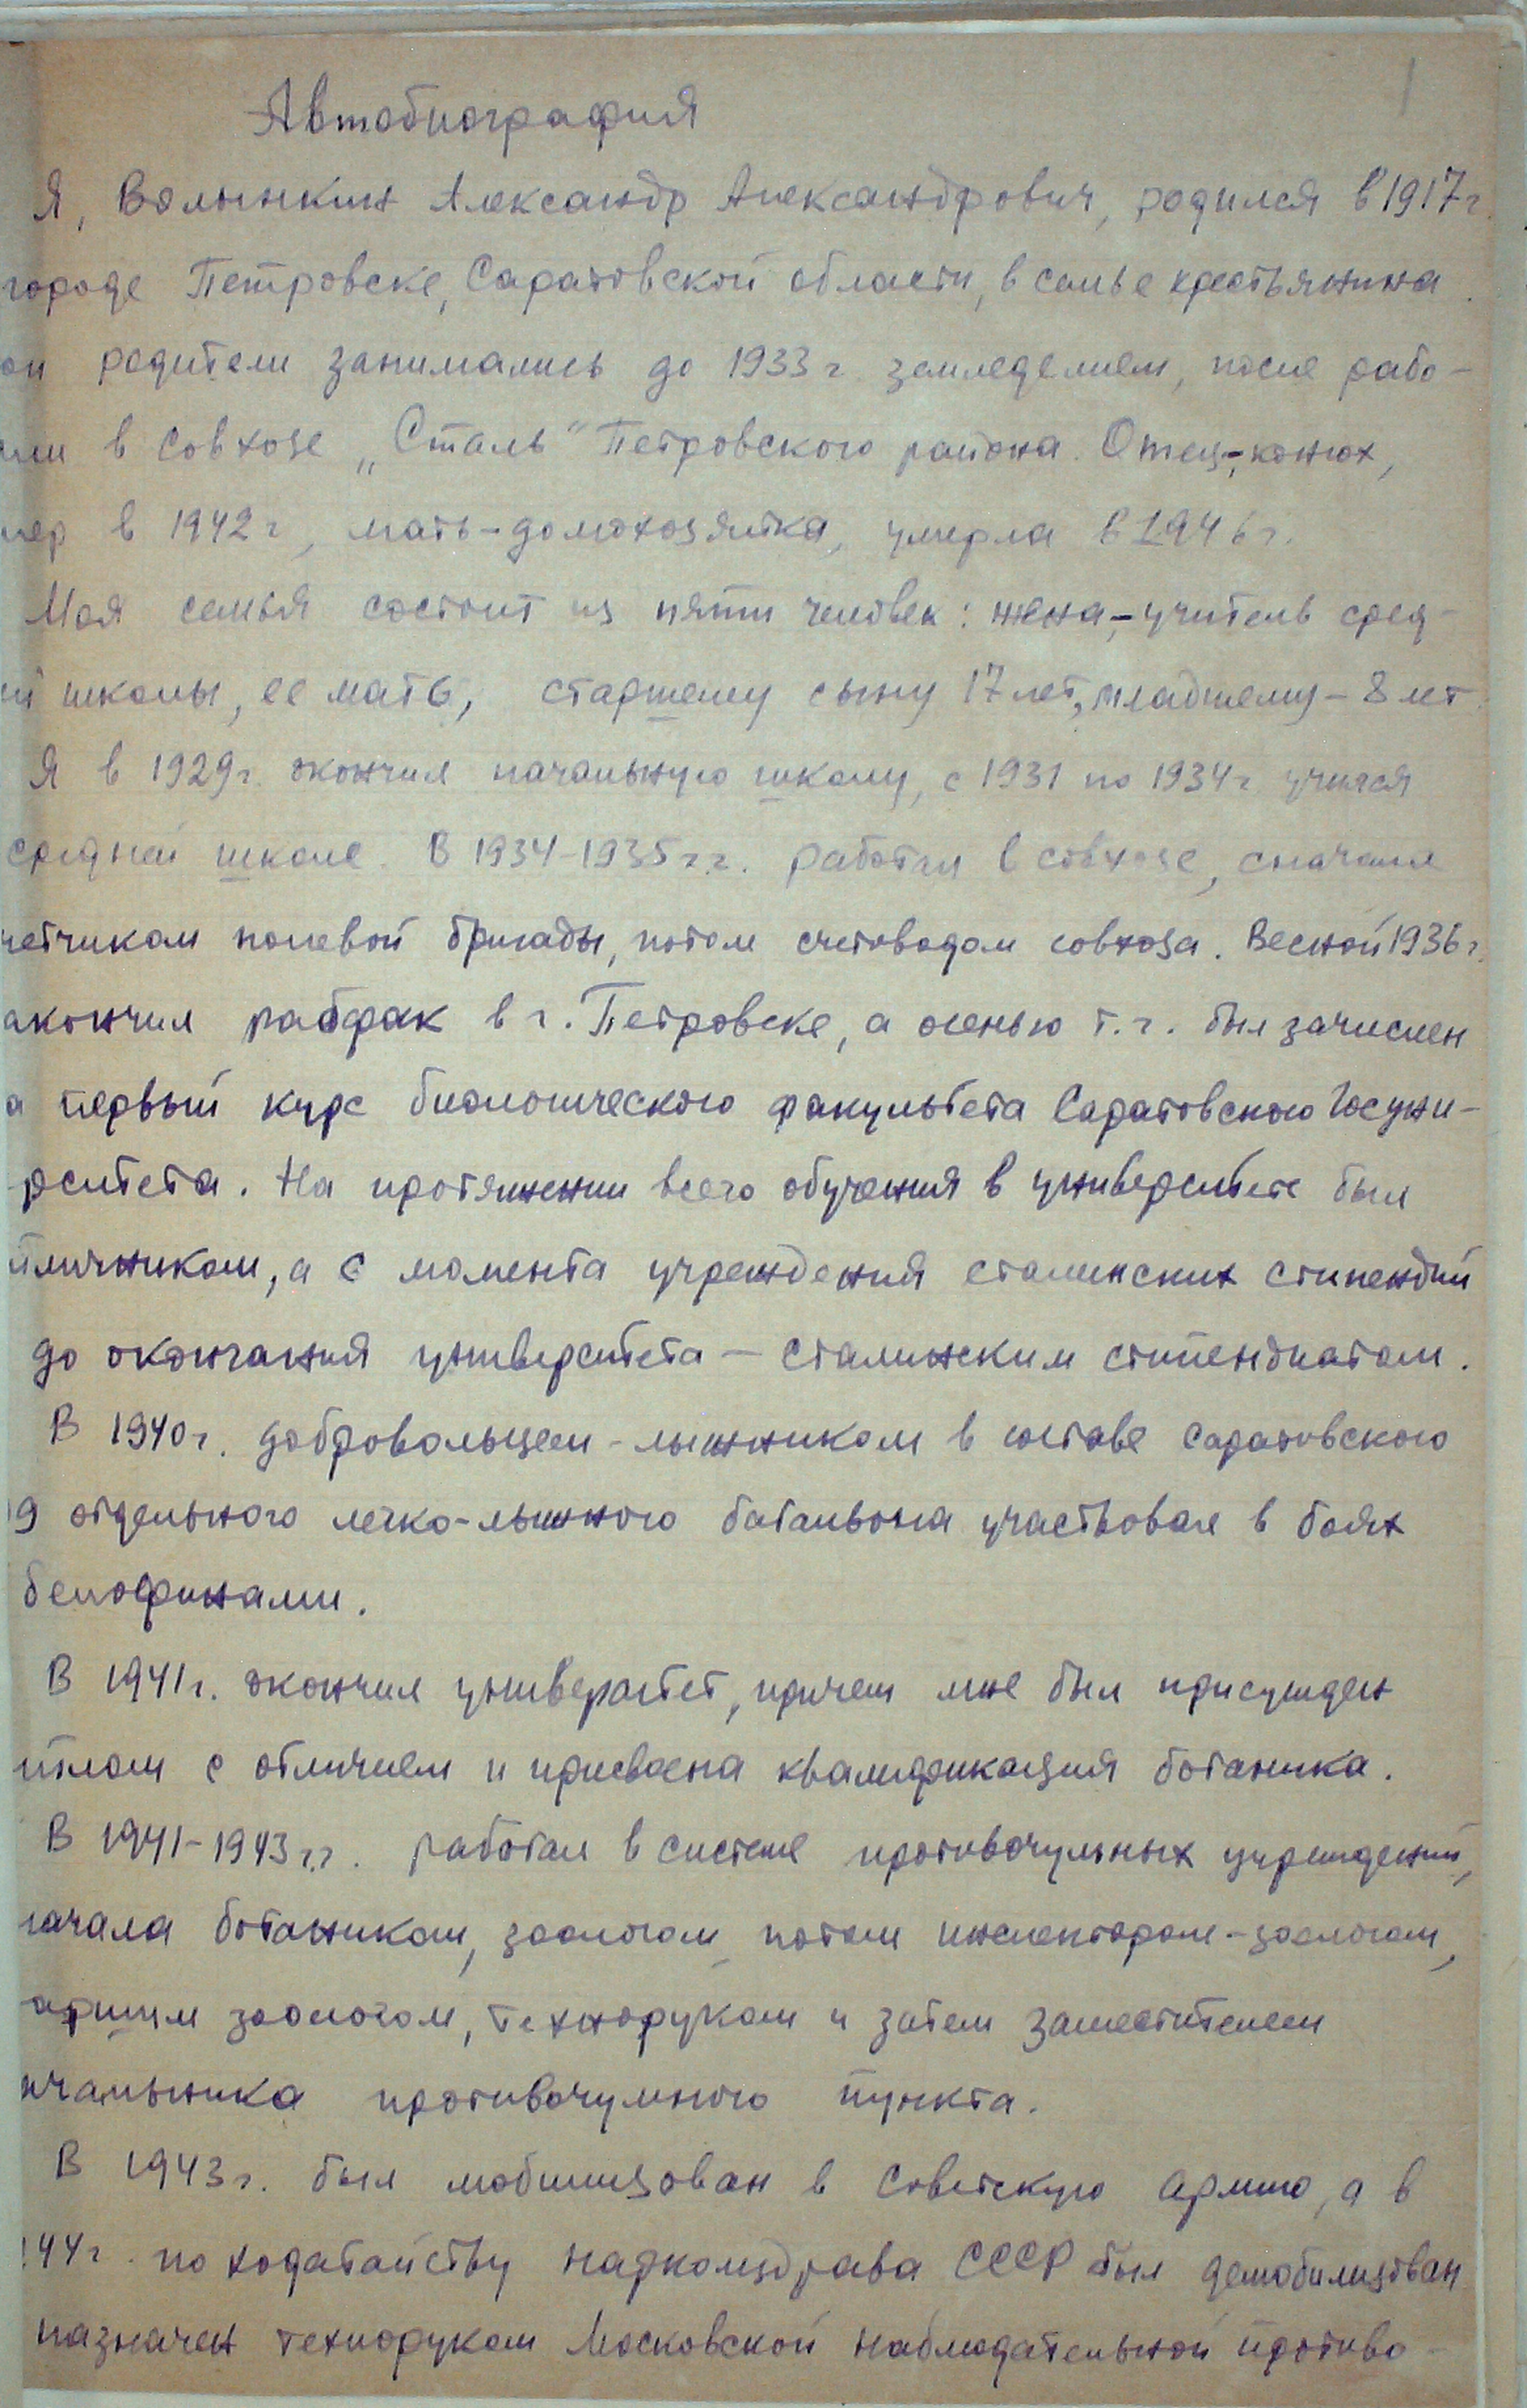 1
Автобиография
Я, Волынкин Александр Александрович, родился в 1917 г.
городе Петровске, Саратовской области, в семье крестьянина.
ои родители занимались до 1933 г. земледелием, после рабо-
али в Совхозе „Сталь" Петровского района. Отец-конюх,
мер в 1942 г, мать-домохозяйка, умерла в 1946 г.
Моя семья состоит из пяти человек: жена,-учитель сред-
й школы, ее мать, старшему сыну 17 лет, младшему - 8 лет.
Я в 1929 г. окончил начальную школу, с 1931 по 1934 г учился
средней школе. В 1934-1935 г.г. работал в совхозе, сначала
четчиком полевой бригады, потом счетоводом совхоза. Весной 1936 г.
акончил рабфак в г. Петровске, а осенью т.г. был зачислен
а первый курс биологического факультета Саратовского Госуни-
рситета. На протяжении всего обучения в университете был
тличником, а с момента учреждения сталинских стипендий
до окончания университета - сталинским стипендиатом.
В 1940 г. добровольцем-лыжником в составе саратовского
9 отдельного легко-лыжного батальона участвовал в боях
белофинами.
В 1941 г. окончил университет, причем мне был присужден
иплом с отличием и присвоена квалификация ботаника.
В 1941-1943 г.г. работал в системе противочумных учреждений,
начала ботаником, зоологом, потом инспектором-зоологом,
аршим зоологом, техноруком и затем заместителем
ачальника противочумного пункта.
В 1943 г. был мобилизован в Советскую армию, а в
944 г. по ходатайству наркомздрава СССР был демобилизован
назначен техноруком Московской наблюдательной противо-